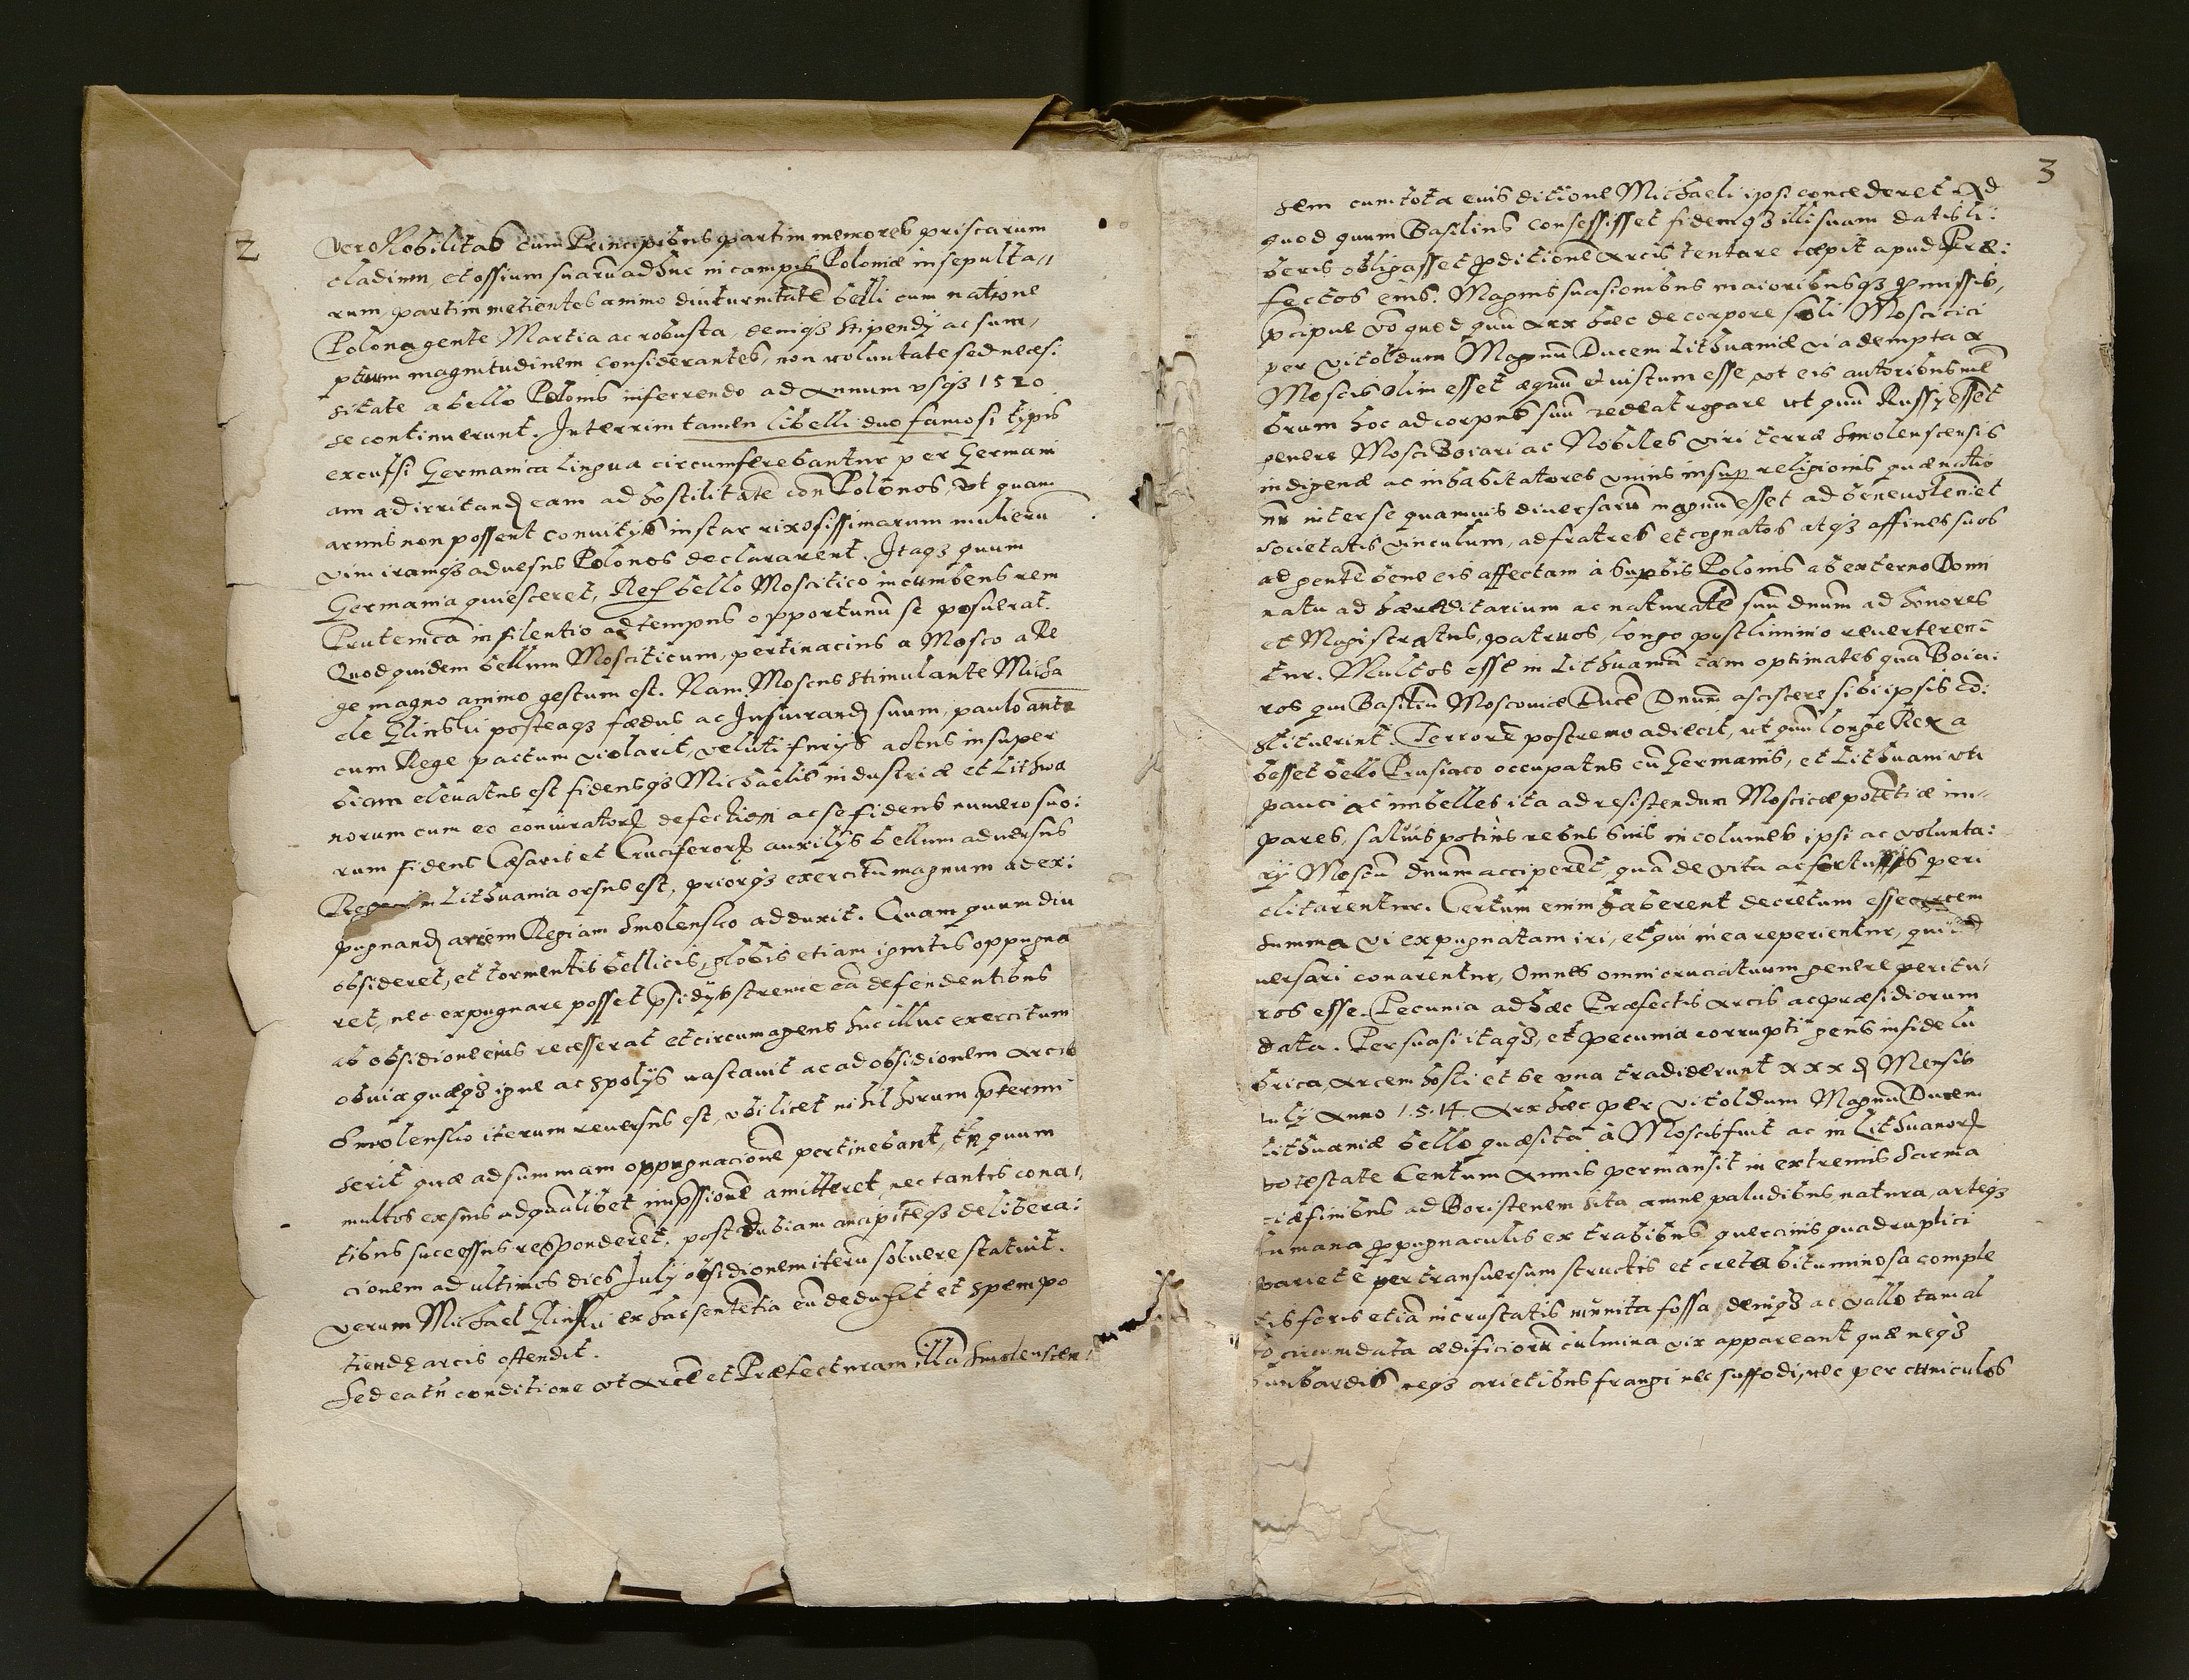 2
vero Nobilitas cum Principibus partim memores priscarum
cladium, et ossium suarũ adhuc in campis Poloniæ insepulta//
rum, partim metientes animo diuturnitatẽ belli cum natione
Polona gente Martia ac robusta, deniqз stipendÿ ac sum/
ptuum magnitudinem considerantes, non voluntate sed neces:
sitate a bello Polonis inferrendo ad Annum vsqз 1520
se continuerunt. Interrim tamen libelli duo famosi typis
excussi Germanica Lingua circumferebantur per Germani
am ad irritandꝭ eam ad hostilitatẽ con Polonos, vt quam
armis non possent convitÿs instar rixosissimarum mulierũ
vim iramqз aduesus Polonos declararent. Itaqз quum
Germania quiesceret, Rex bello Moscitico incumbens rem
Prutenicã in silentio ad tempus opportunũ se posuerat.
Quod quidem bellum Mosciticum, pertinacius a Mosco a Re
ge magno animo gestum est. Nam Moscus stimulante Micha
ele Glinski posteaqз fædus ac Jusiurandꝭ suum, paulo ante
cum Rege pactum violarit, veluti furÿs actus insuper
biam eleuatus est fidensqз Michaelis industriæ et Lithwa
norum cum eo coniuratorꝝ defectioni ac se fidens numero suo:
rum fidens Cæsaris et Cruciferorꝝ auxilÿs bellum aduersus
Regem in Lithuania orsus est, priorqз exercitũ magnum ad ex:
pugnandꝭ arcem Regiam Smolensko adduxit. Quam quum diu
obsideret, et tormentis bellicis, globis etiam ignitis oppugna
ret, nec expugnare posset p̃sidÿs strenue eã defendentibus
ab obsidione eius recesserat et circumagens huc illuc exercitum
obvia quæqз igne ac spolÿs vastavit ac ad obsidionem Arcis
Smolensko iterum reuersus est, vbi licet nihil horum p̃termi
serit quæ ad summam oppugnacionẽ pertinebant, tñ quum
multos ex suis ad quãlibet imp̃ssionẽ amitteret, nec tantis cona/
tibus successus responderẽt, post dubiam ancipitẽqз delibera:
cionem ad ultimos dies Julÿ obsidionem iterũ soluere statuit.
verum Michael Glinski ex hac sententia eũ deduxit et spem po
tiendę arcis ostendit.
Sed ea tñ conditione vt Arcẽ et Præfecturam illã Smolenscen/
3
sem cum tota eius ditione Michaeli ipsi concederet Ad
quod quum Basilius consessisset fidemqз illi suam datis li:
beris obligasset p̱ditionẽ Arcis tentare cæpit apud Præ:
fectos eius. Magnis suasionibus maioribusqз p̱missis,
p̃cipue võ quod quũ Arx hæc de corpore soli Moscici
per Vitoldum Magnũ Ducem Lithuaniæ vi adempta a
Moscis olim esset æquũ et iustum esse vt eis autoribus mẽ
brum hoc ad corpus suũ redeat rogare ut quũ Russÿ essẽt
genere Mosci Boiari ac Nobiles viri terræ Smolenscensis
indigenæ ac inhabitatores vnius insup̱ religionis quæ natio
nũ inter se quamuis diuersarũ magnũ esset ad beneuolem̃ et
societatis vinculum, ad fratres et cognatos atqз affines suos
ad gentẽ bene eis affectam à Sup̱bis Polonis ab externo Domi
natu ad hæreditarium ac naturalẽ suũ dñum ad honores
et Magistratus, patruos, longo postliminio reverteren:
tur. Multos esse in Lithuania tam optimates quã Boia:
ros qui Basiliũ Moscoviæ Ducẽ Dñum asciscere sibi ipsis cõ:
stituerint. Terrorẽ postremo adiecit, ut quũ longe Rex a
besset bello Prusiaco occupatus cũ Germanis, et Lithuani uti
pauci ac imbelles ita ad resistendum Moscicæ potẽtiæ im-
pares, salvis potius rebus suis incolumes ipsi ac volunta:
rÿ Moscũ dñum acciperẽt, quã de vita ac fortunis peri
clitarentur. Certum enim haberent decretum esse arcem
summa vi expugnatam iri, et qui in ea reperientur, qui id
versari conarentur, Omnes omni cruciatuum genere peritu/
ros esse. Pecunia ad hæc Præfectis Arcis ac præsidiorum
data. Persuasi itaqз, et pecunia corrupti gens infide lu
brica, Arcem hosti et se vna tradiderunt XXX ꝭ Mensis
Iulÿ Anno 1.5.14. Arx hæc per Vitoldum Magnũ Ducem
Lithuaniæ bello quæsita à Moscis fuit ac in Lithuanorꝝ
potestate Centum Annis permansit in extremis Sarma
tiæ finibus ad Boristenem sita amne paludibus, natura, arteqз
humana p̱pugnaculis ex trabibus quercinis quadruplici
pariete per transuersum structis et creta bituminosa comple
tis foris etiã incrustatis munita fossa, deniqз ac vallo tam al
to circumdata ædificiorũ culmina vix appareant quæ neqз
bunbardis neqз arietibus frangi nec suffodi, nec per cuniculos